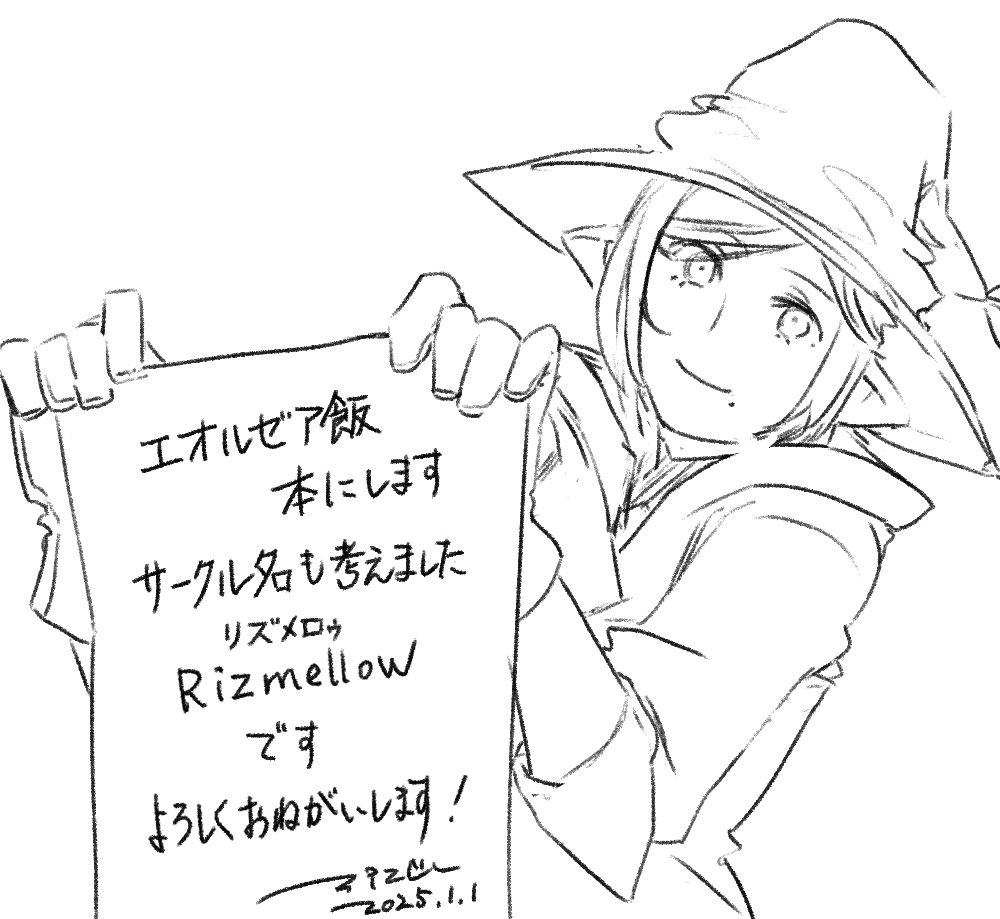 エオルゼア飯
本にします
サークル名も考えました
リズメロゥ
Rizmellow
です
よろしくおねがいします!
2025.1.1